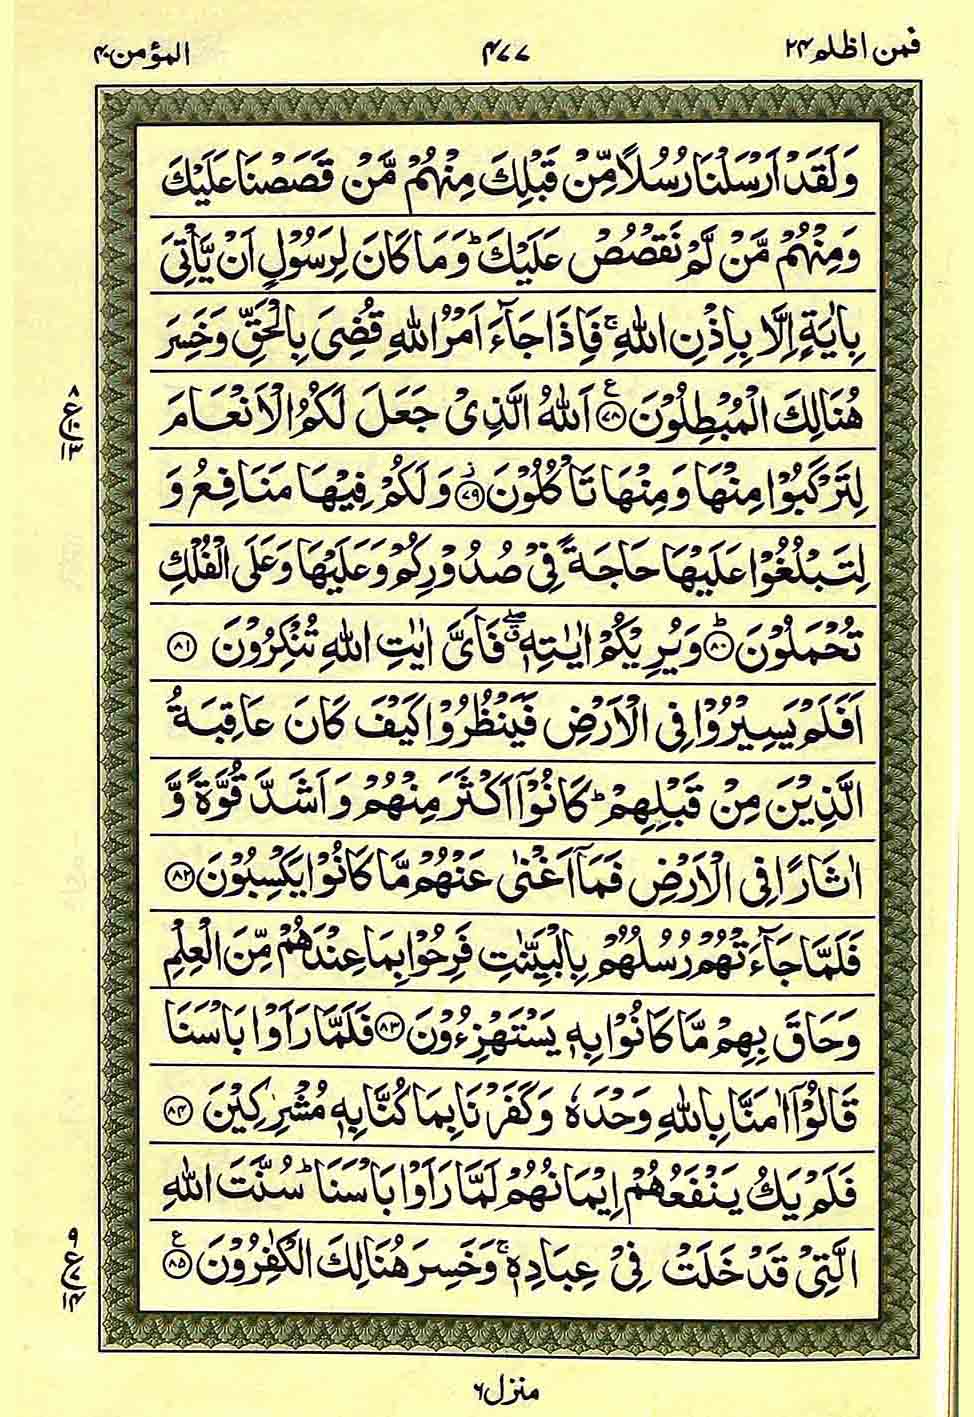 فمن اظلم ۲۴
۴۷۷
المؤمن ۴۰
وَلَقَدْ اَرْسَلْنَا رُسُلًا مِّنْ قَبْلِكَ مِنْهُمْ مَّنْ قَصَصْنَا عَلَيْكَ
وَمِنْهُمْ مَّنْ لَّمْ نَقْصُصْ عَلَيْكَ ؕ وَمَا كَانَ لِرَسُوْلٍ اَنْ يَّاْتِىَ
بِاٰيَةٍ اِلَّا بِاِذْنِ اللّٰهِ ۚ فَاِذَا جَآءَ اَمْرُ اللّٰهِ قُضِىَ بِالْحَقِّ وَخَسِرَ
هُنَالِكَ الْمُبْطِلُوْنَ ﴿۷۸﴾ ع اَللّٰهُ الَّذِىْ جَعَلَ لَكُمُ الْاَنْعَامَ
لِتَرْكَبُوْا مِنْهَا وَمِنْهَا تَاْكُلُوْنَ ﴿۷۹﴾ وَلَكُمْ فِيْهَا مَنَافِعُ وَ
لِتَبْلُغُوْا عَلَيْهَا حَاجَةً فِىْ صُدُوْرِكُمْ وَعَلَيْهَا وَعَلَى الْفُلْكِ
تُحْمَلُوْنَ ﴿۸۰﴾ ؕ وَيُرِيْكُمْ اٰيٰتِهٖ ۖ فَاَىَّ اٰيٰتِ اللّٰهِ تُنْكِرُوْنَ ﴿۸۱﴾
اَفَلَمْ يَسِيْرُوْا فِى الْاَرْضِ فَيَنْظُرُوْا كَيْفَ كَانَ عَاقِبَةُ
الَّذِيْنَ مِنْ قَبْلِهِمْ ؕ كَانُوْۤا اَكْثَرَ مِنْهُمْ وَاَشَدَّ قُوَّةً وَّ
اٰثَارًا فِى الْاَرْضِ فَمَاۤ اَغْنٰى عَنْهُمْ مَّا كَانُوْا يَكْسِبُوْنَ ﴿۸۲﴾
فَلَمَّا جَآءَتْهُمْ رُسُلُهُمْ بِالْبَيِّنٰتِ فَرِحُوْا بِمَا عِنْدَهُمْ مِّنَ الْعِلْمِ
وَحَاقَ بِهِمْ مَّا كَانُوْا بِهٖ يَسْتَهْزِءُوْنَ ﴿۸۳﴾ فَلَمَّا رَاَوْا بَاْسَنَا
قَالُوْۤا اٰمَنَّا بِاللّٰهِ وَحْدَهٗ وَكَفَرْنَا بِمَا كُنَّا بِهٖ مُشْرِكِيْنَ ﴿۸۴﴾
فَلَمْ يَكُ يَنْفَعُهُمْ اِيْمَانُهُمْ لَمَّا رَاَوْا بَاْسَنَا ؕ سُنَّتَ اللّٰهِ
الَّتِىْ قَدْ خَلَتْ فِىْ عِبَادِهٖ ۚ وَخَسِرَ هُنَالِكَ الْكٰفِرُوْنَ ﴿۸۵﴾ ع
۸
ع ۱۰
۱۳
۹
ع ۷
۱۴
منزل ۶